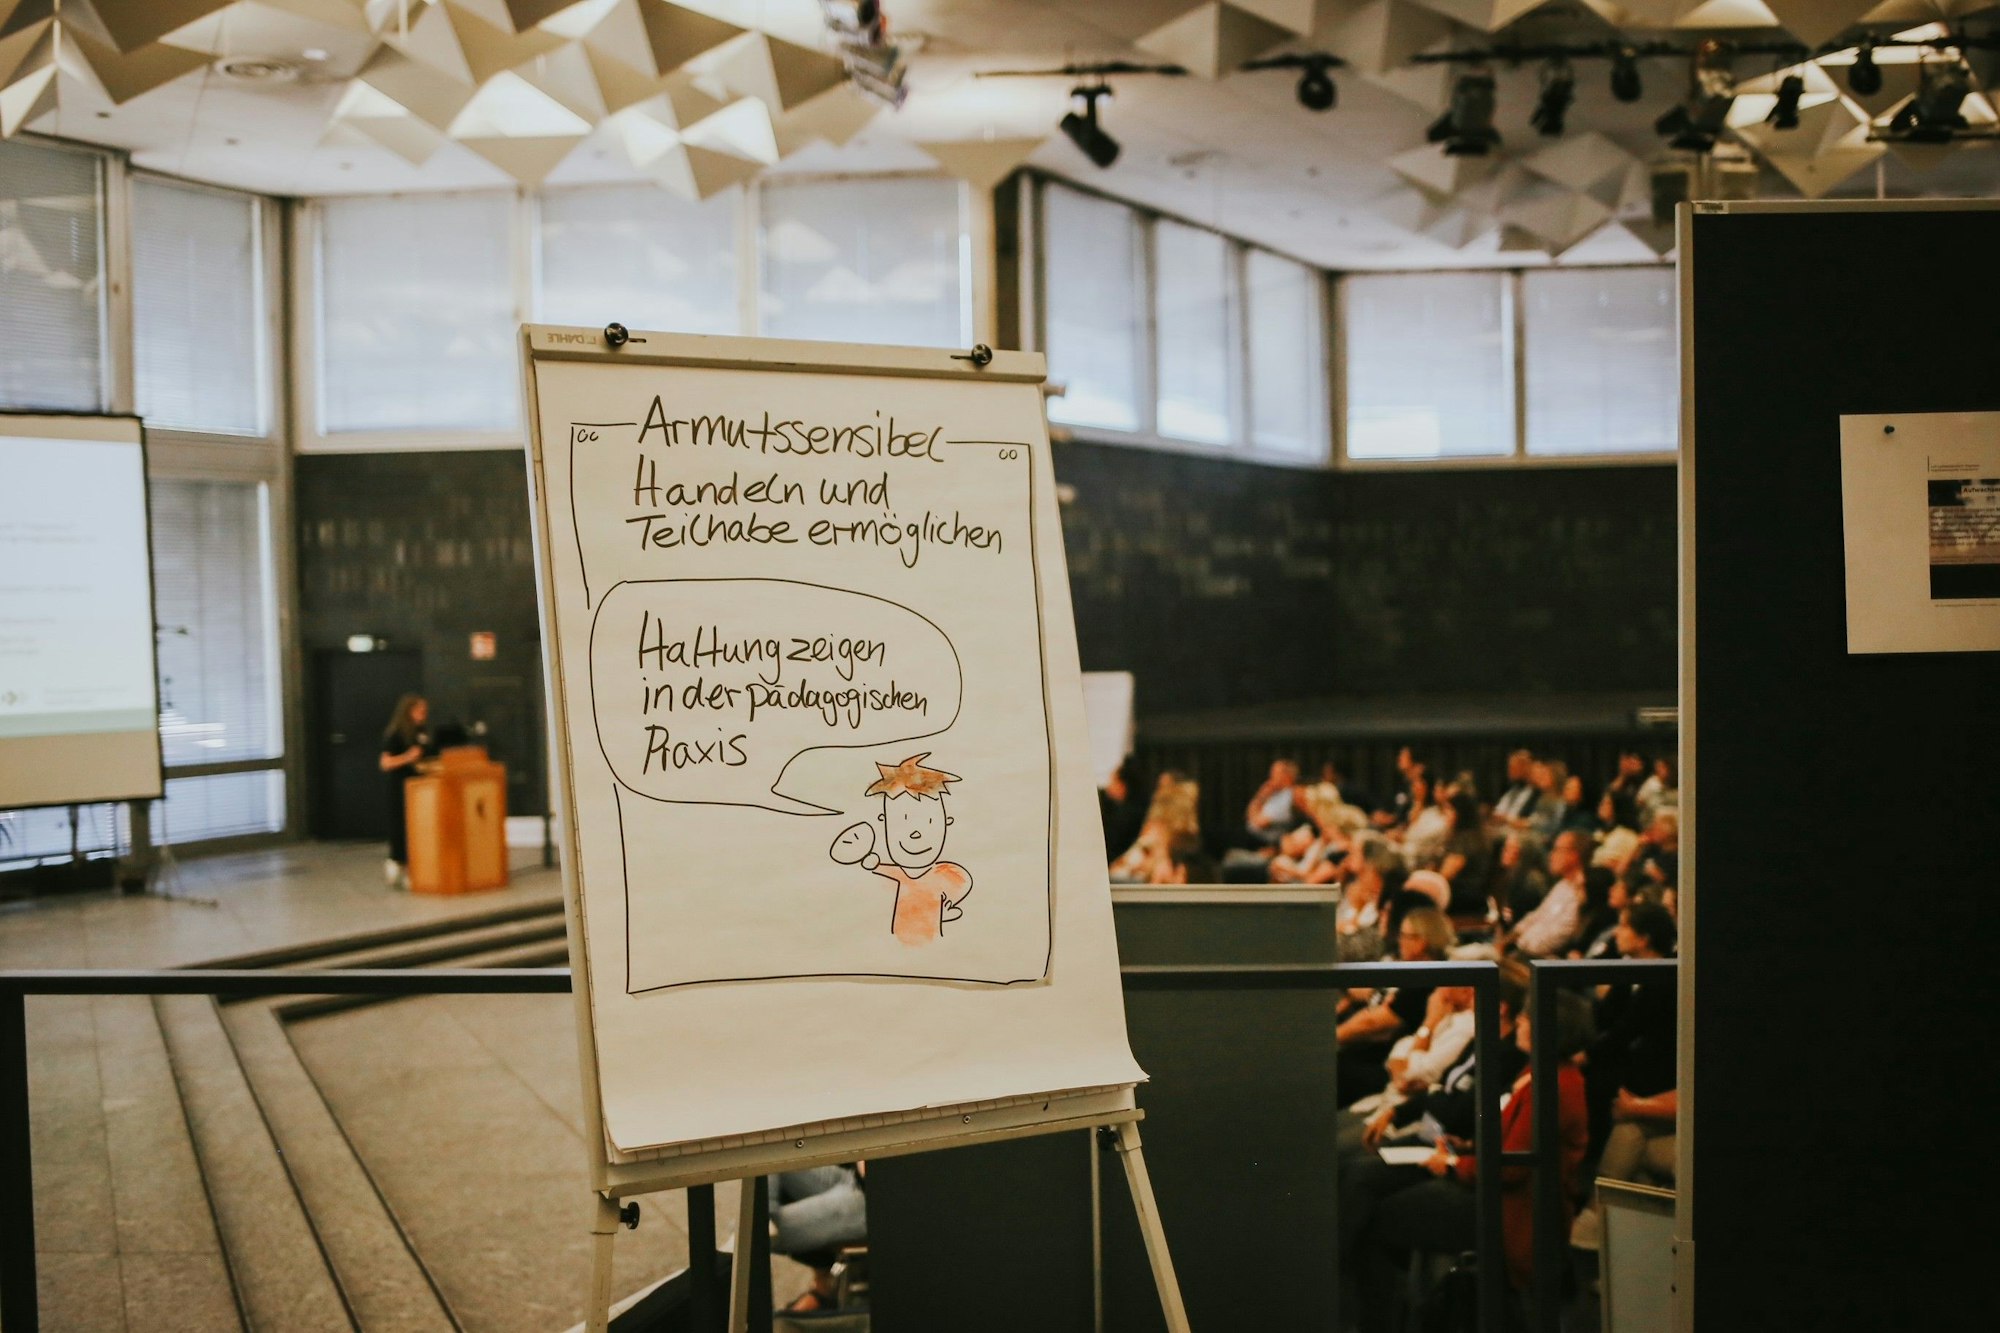 DAHLE
Armutssensibel
Handeln und
Teilhabe ermöglichen
Haltung zeigen
in der pädagogischen
Praxis